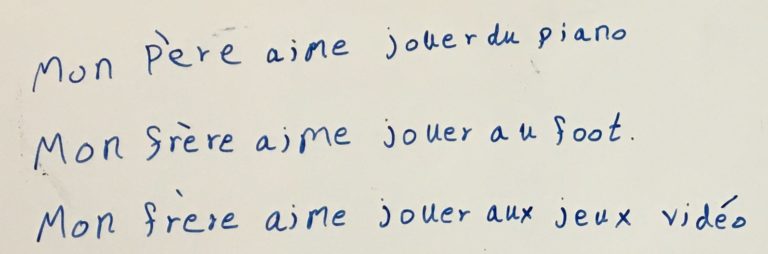 Mon Père aime jouer du piano
Mon frère aime jouer au foot.
Mon frère aime jouer aux jeux vidéo